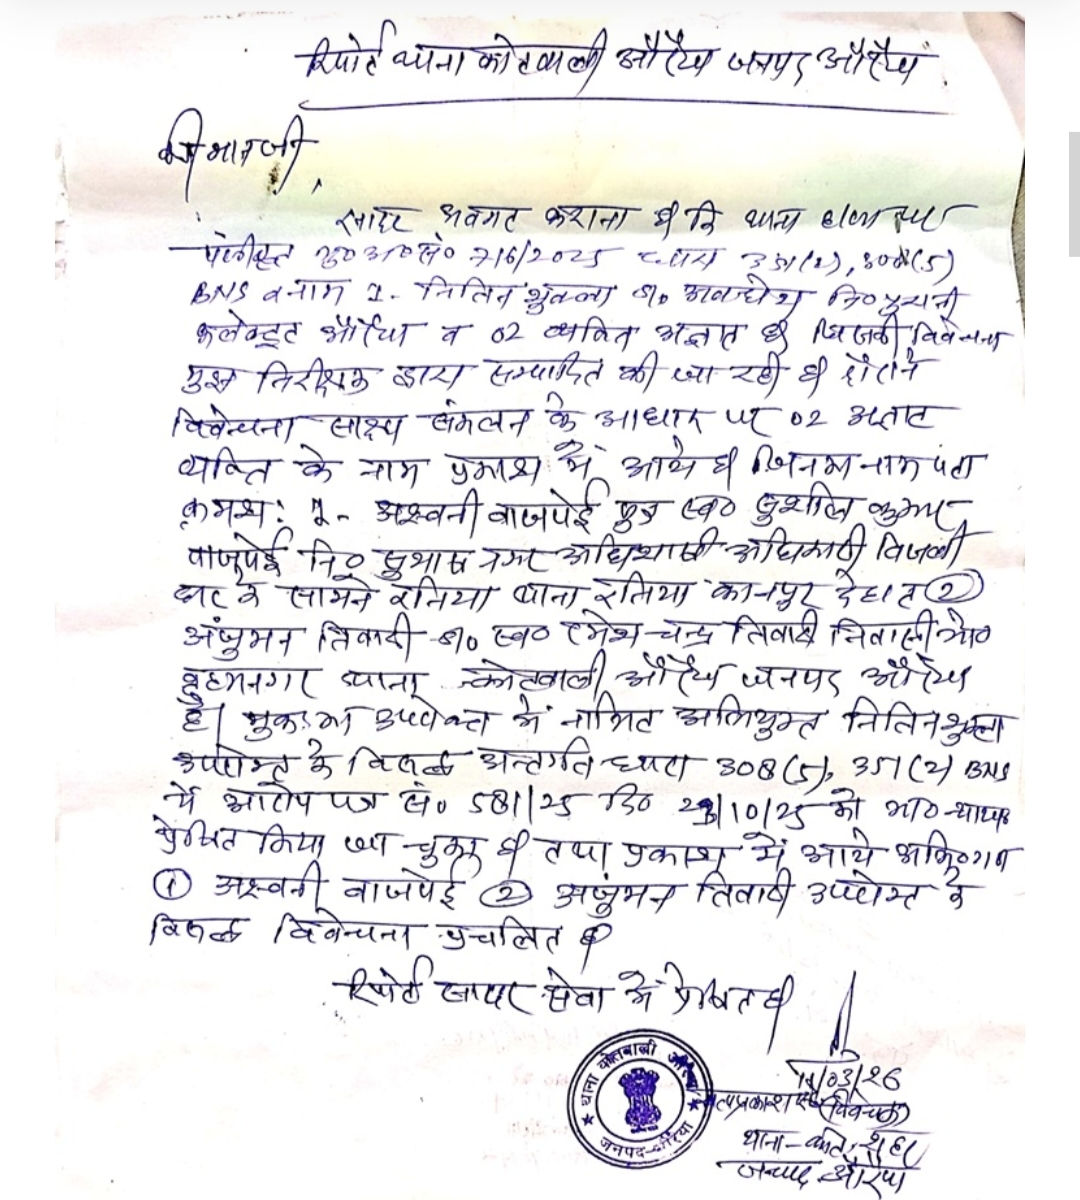 रिपोर्ट थाना कोतवाली औरैया जनपद औरैया
श्रीमानजी,
सादर अवगत कराना है कि थाना हाजा पर
पंजीकृत मु०अ०सं० 716/2025 धारा 351(2), 308(5)
BNS बनाम 1- नितिन शुक्ला s/o अवधेश नि० पुरानी
कलेक्ट्रट औरैया व 02 व्यक्ति अज्ञात है जिसकी विवेचना
मुझ निरीक्षक द्वारा सम्पादित की जा रही है दौराने
विवेचना साक्ष्य संकलन के आधार पर 02 अज्ञात
व्यक्ति के नाम प्रकाश में आये है जिनका नाम पता
क्रमशः 1- अश्वनी वाजपेई पुत्र स्व० सुशील कुमार
वाजपेई नि० सुभाष नगर अधिशाषी अधिकारी बिजली
घर के सामने रनिया थाना रनिया कानपुर देहात (2)
अंजुमन तिवारी s/o स्व० रमेश चन्द्र तिवारी निवासी मो०
ब्रह्मनगर थाना कोतवाली औरैया जनपद औरैया
है। मुकदमा उपरोक्त में नामित अभियुक्त नितिन शुक्ला
उपरोक्त के विरूद्ध अन्तर्गत धारा 308(5), 351(2) BNS
में आरोप पत्र सं० 581/25 दि० 23/10/25 को मा० न्याया०
प्रेषित किया जा चुका है तथा प्रकाश में आये अभि०गण
(1) अश्वनी वाजपेई (2) अजुंमन तिवारी उपरोक्त के
विरूद्ध विवेचना प्रचलित है
रिपोर्ट सादर सेवा में प्रेषित है
/03/26
सत्यप्रकाश (विवेचक)
थाना - कोत. शहर
जनपद औरैया
थाना कोतवाली औरैया
जनपद-औरैया